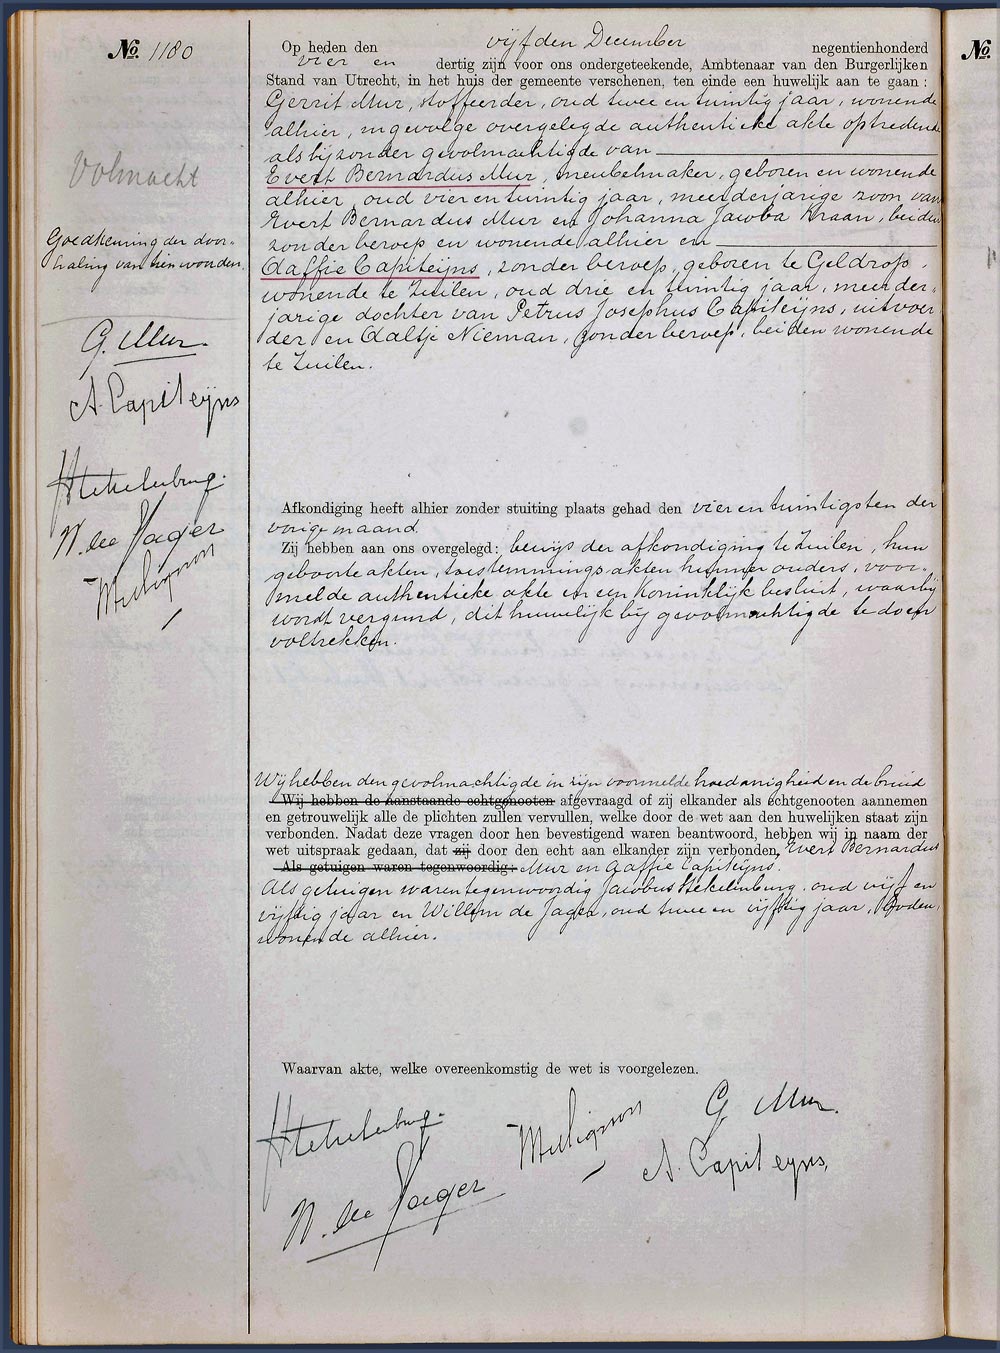 No. 1180
Volmacht
Goedkeuring der door-
haling van tien woorden.
G. Mur.
A. Capiteijns
W. de Jager
Op heden den vijfden December negentienhonderd
vier en dertig zijn voor ons ondergeteekende, Ambtenaar van den Burgerlijken
Stand van Utrecht, in het huis der gemeente verschenen, ten einde een huwelijk aan te gaan:
Gerrit Mur, stoffeerder, oud twee en twintig jaar, wonende
alhier, ingevolge overgelegde authentieke akte optredende
als bijzonder gevolmachtigde van
Evert Bernardus Mur, meubelmaker, geboren en wonende
alhier, oud vier en twintig jaar, meerderjarige zoon van
Evert Bernardus Mur en Johanna Jacoba Kraan, beiden
zonder beroep en wonende alhier en
Aaffie Capiteijns, zonder beroep, geboren te Geldrop,
wonende te Zuilen, oud drie en twintig jaar, meerder-
jarige dochter van Petrus Josephus Capiteijns, uitvoer
der en Aaltje Nieman, zonder beroep, beiden wonende
te Zuilen.
Afkondiging heeft alhier zonder stuiting plaats gehad den vier en twintigsten der
vorige maand.
Zij hebben aan ons overgelegd: bewijs der afkondiging te Zuilen, hun
geboorteakten, toestemmings-akten hunner ouders, voor-
melde authentieke akte en een Koninklijk besluit, waarbij
wordt vergund, dit huwelijk bij gevolmachtigde te doen
voltrekken.
Wij hebben den gevolmachtigde in zijn voormelde hoedanigheid en de bruid
Wij hebben de aanstaande echtgenooten afgevraagd of zij elkander als echtgenooten aannemen
en getrouwelijk alle de plichten zullen vervullen, welke door de wet aan den huwelijken staat zijn
verbonden. Nadat deze vragen door hen bevestigend waren beantwoord, hebben wij in naam der
wet uitspraak gedaan, dat zij door den echt aan elkander zijn verbonden, Evert Bernardus
Als getuigen waren tegenwoordig: Mur en Aaffie Capiteijns.
Als getuigen waren tegenwoordig Jacobus Hekelenburg, oud vijf en
vijftig jaar en Willem de Jager, oud twee en vijftig jaar, boden,
wonende alhier.
Waarvan akte, welke overeenkomstig de wet is voorgelezen.
G. Mur.
A. Capiteyns,
W. de Jager
No.